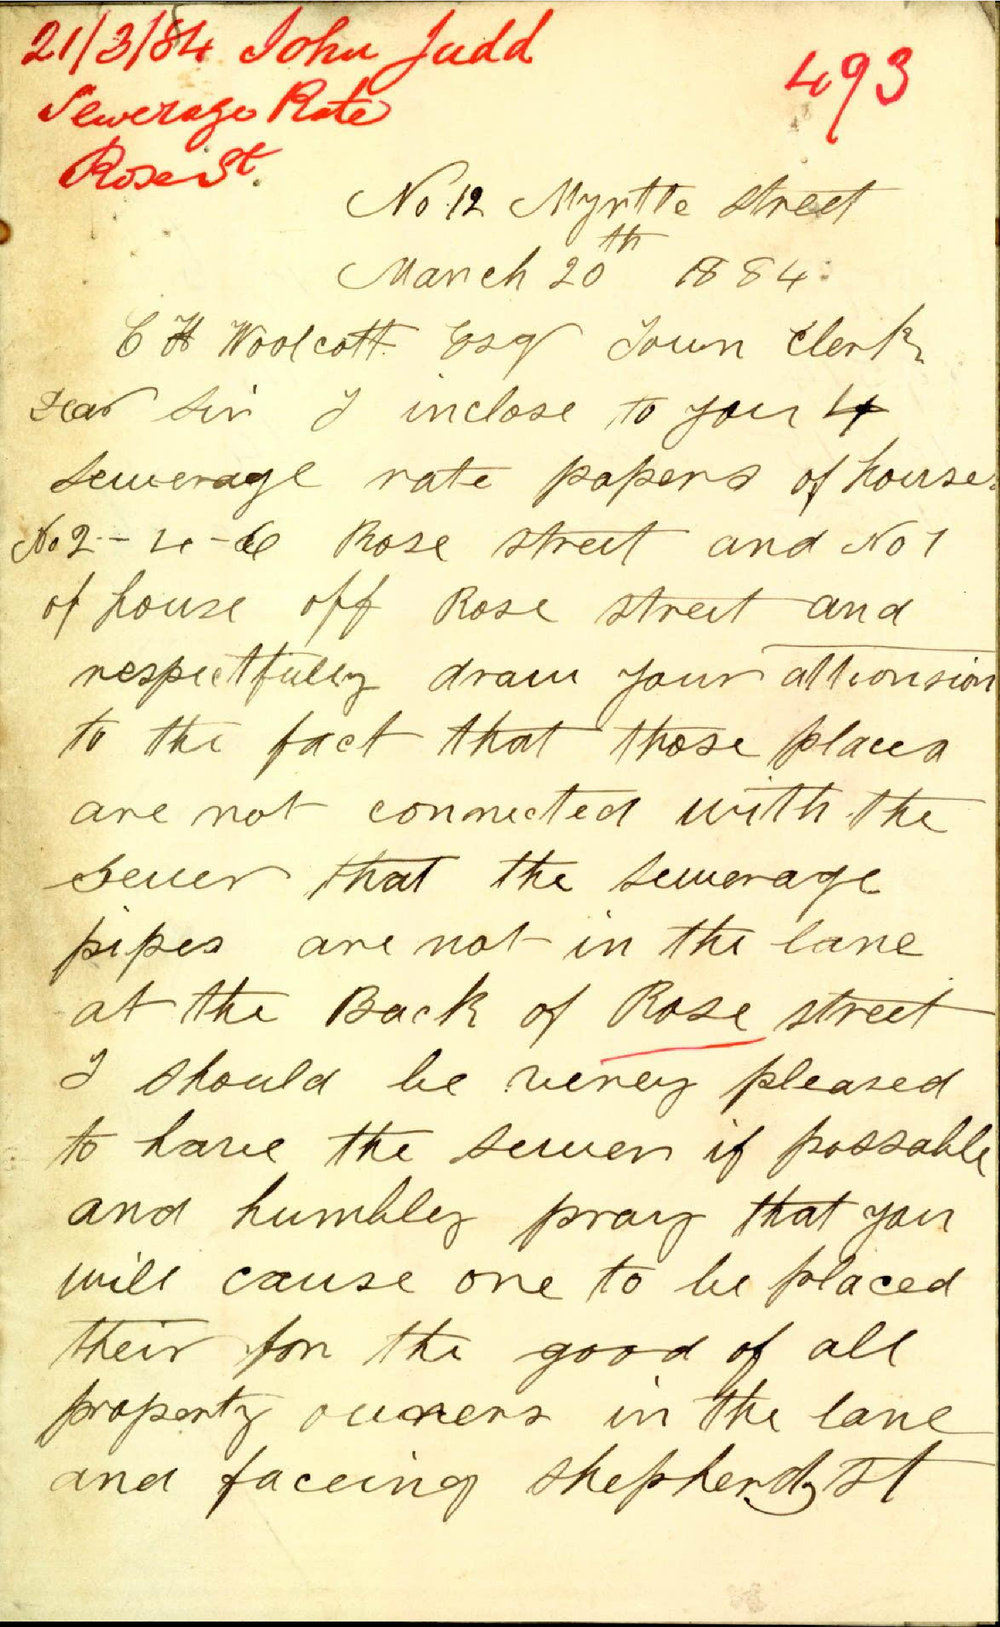 21/3/84 John Judd
Sewerage Rate
Rose St.
493
No 12 Myrtle street
March 20th 1884
C H Woolcott Esq Town Clerk
Dear Sir I inclose to your 4
sewerage rate papers of house
No 2 - 4 - 6 Rose street and No 1
of house off Rose street and
respectfully draw your attension
to the fact that those places
are not connected with the
sewer that the sewerage
pipes are not in the lane
at the Back of Rose street
I should be verey pleased
to have the sewer if possable
and humbley pray that you
will cause one to be placed
their for the good of all
property owners in the lane
and faceing shepherd St